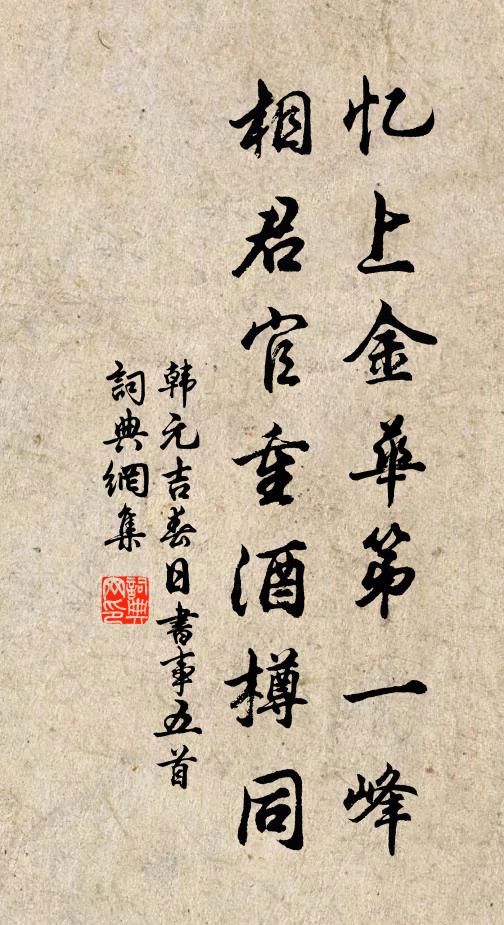 忆上金華第一峰
相君官重酒樽同
韩元吉春日書事五首
詞典網集
詞典
网印